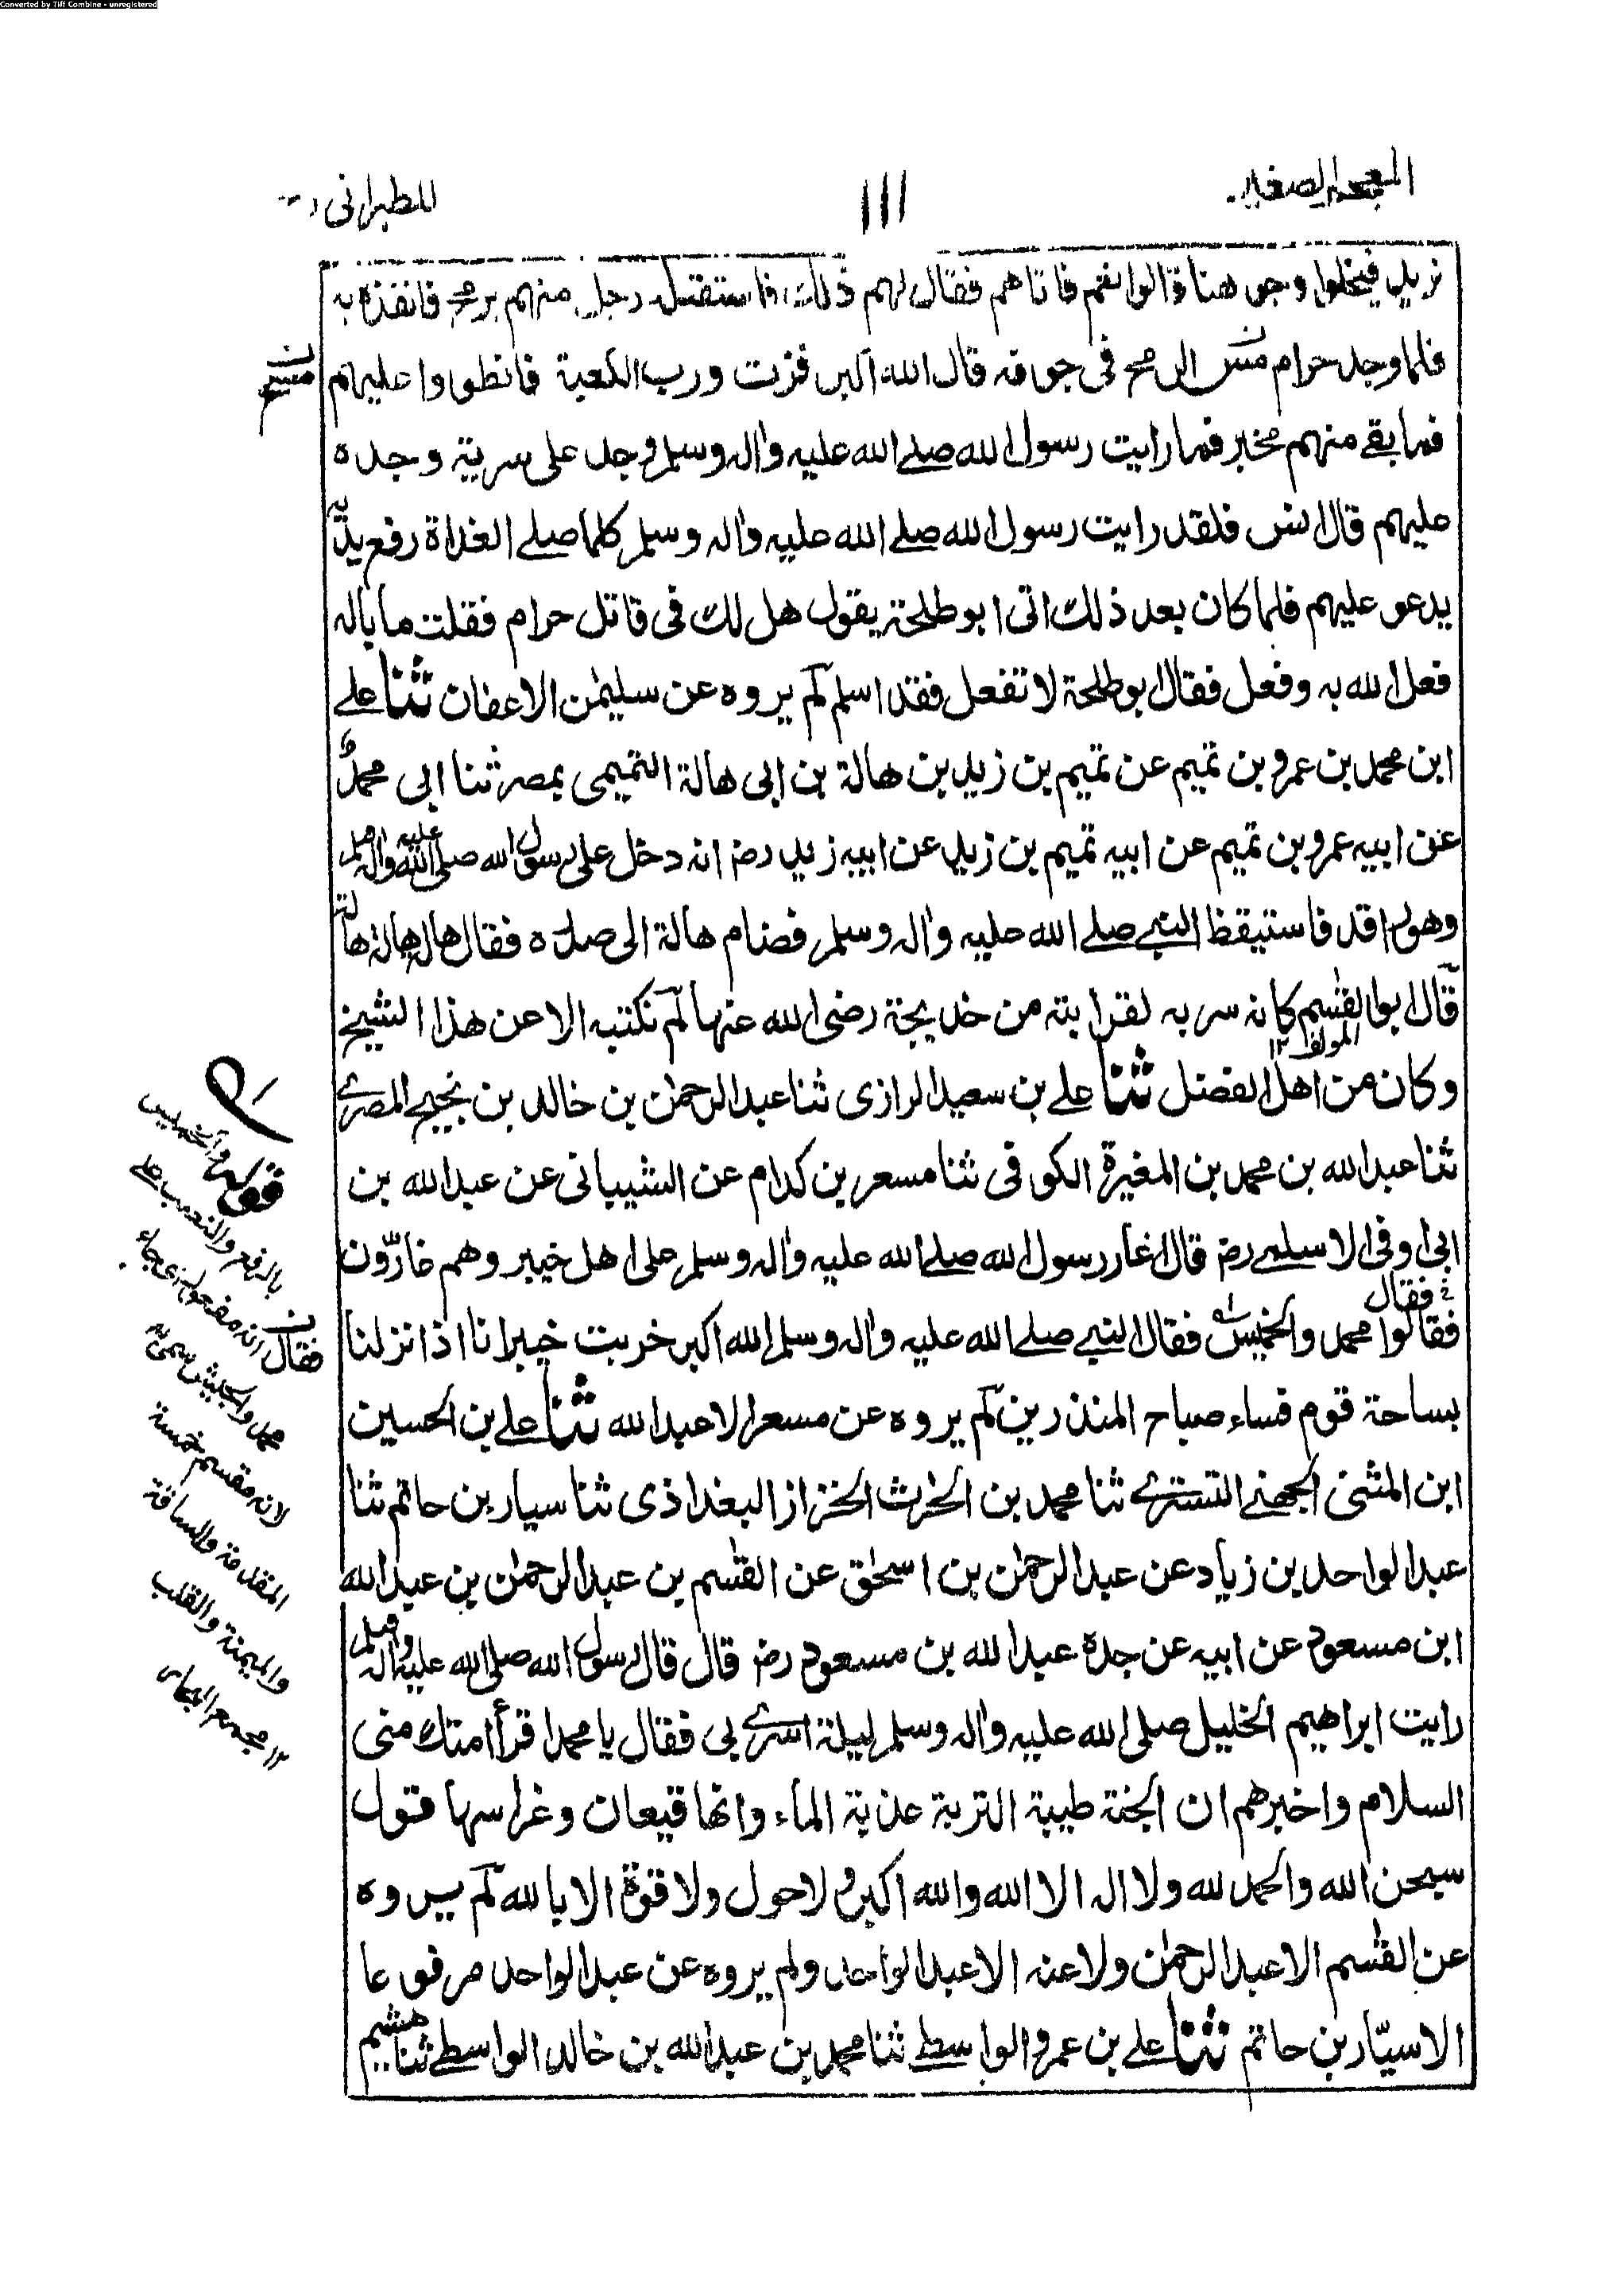 Converted by Tiff Combine - unregistered
المعجم الصغير
١١١
للطبرانى
نريد فيخلوا وجوهنا قالوا نعم فاتاهم فقال لهم ذلك فاستقبل رجل منهم برمح فانفذه به
فلما وجد حرام مس الرمح فى جوفه قال الله اكبر فزت ورب الكعبة فانطووا عليهم
فما بقے منهم مخبر فما رايت رسول الله صلے الله عليه واله وسلم وجد على سرية وجده
عليهم قال انس فلقد رايت رسول الله صلے الله عليه واله وسلم كلما صلے الغداة رفع يديه
يدعو عليهم فلما كان بعد ذلك اتى ابو طلحة يقول هل لك فى قاتل حرام فقلت ما باله
فعل الله به وفعل فقال ابو طلحة لا تفعل فقد اسلم لم يروه عن سليمٰن الا عفان ثنا علے
ابن محمد بن عمرو بن تميم عن تميم بن زيد بن هالة بن ابى هالة التميمى بمصر ثنا ابى محمد
عن ابيه عمرو بن تميم عن ابيه تميم بن زيد عن ابيه زيد رضـ انه دخل على رسول الله صلى الله عليه واله وسلم
وهو راقد فاستيقظ النبے صلے الله عليه واله وسلم فضام هالة الى صدره فقال هالہ هالة هالة
قال ابو القٰسم كانه سر به لقرابته من خديجة رضى الله عنها لم نكتبه الا عن هذا الشيخ
المولف ١٢
وكان من اهل الفضل ثنا علے بن سعيد الرازى ثنا عبد الرحمٰن بن خالد بن نجيح المصرے
ثنا عبد الله بن محمد بن المغيرة الكوفى ثنا مسعر بن كدام عن الشيبانى عن عبد الله بن
ابى اوفى الاسلمے رضـ قال اغار رسول الله صلے الله عليه واله وسلم على اهل خيبر وهم غارّون
فقال
فقالوا محمد والخميس فقال النبے صلے الله عليه واله وسلم الله اكبر خربت خيبر انا اذا نزلنا
بساحة قوم فساء صباح المنذرين لم يروه عن مسعر الا عبد الله ثنا علے بن الحسين
ابن المثنى الجهنے التسترے ثنا محمد بن الحٰرث الخزاز البغداذى ثنا سيار بن حاتم ثنا
عبد الواحد بن زياد عن عبد الرحمٰن بن اسحٰق عن القٰسم بن عبد الرحمٰن بن عبد الله
ابن مسعود عن ابيه عن جده عبد الله بن مسعود رضـ قال قال رسول الله صلى الله عليه واله وسلم
رايت ابراهيم الخليل صلى الله عليه واله وسلم ليلة اسرے بى فقال يا محمد اقرأ امتك منى
السلام واخبرهم ان الجنة طيبة التربة عذبة الماء وانها قيعان وغراسها قول
سبحٰن الله والحمد لله ولا اله الا الله والله اكبر ولا حول ولا قوة الا بالله لم يروه
عن القٰسم الا عبد الرحمٰن ولا عنه الا عبد الواحد ولم يروه عن عبد الواحد مرفوعا
الا سيّار بن حاتم ثنا علے بن عمرو الواسطے ثنا محمد بن عبد الله بن خالد الواسطے ثنا هشيم
قوله والخميس
بالرفع والنصب علے
انه مفعول اى جاء
فقال
محمد والجيش سمى به
لانه مقسم خمسة
المقدمة والساقة
والميمنة والقلب
١٢ مجمع البحار